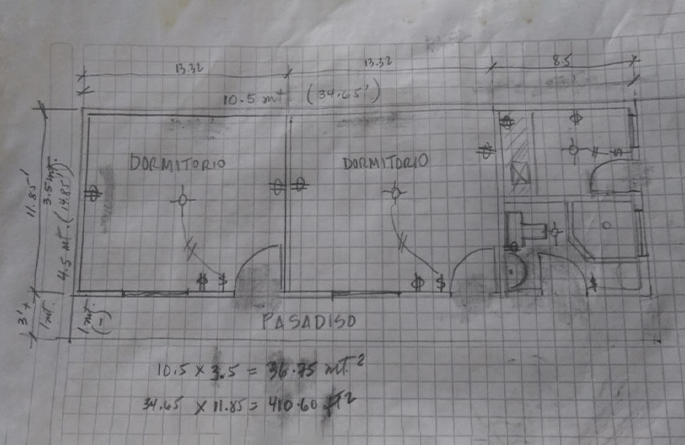 13.32 13.32 8.5
10.5 mt (34.65')
DORMITORIO DORMITORIO
11.85'
3.5 mt.
4.5 mt. (14.85')
3'+
1 mt.
1 mt.
(-)
PASADISO
10.5 x 3.5 = 36.75 mt²
34.65 x 11.85 = 410.60 ft²